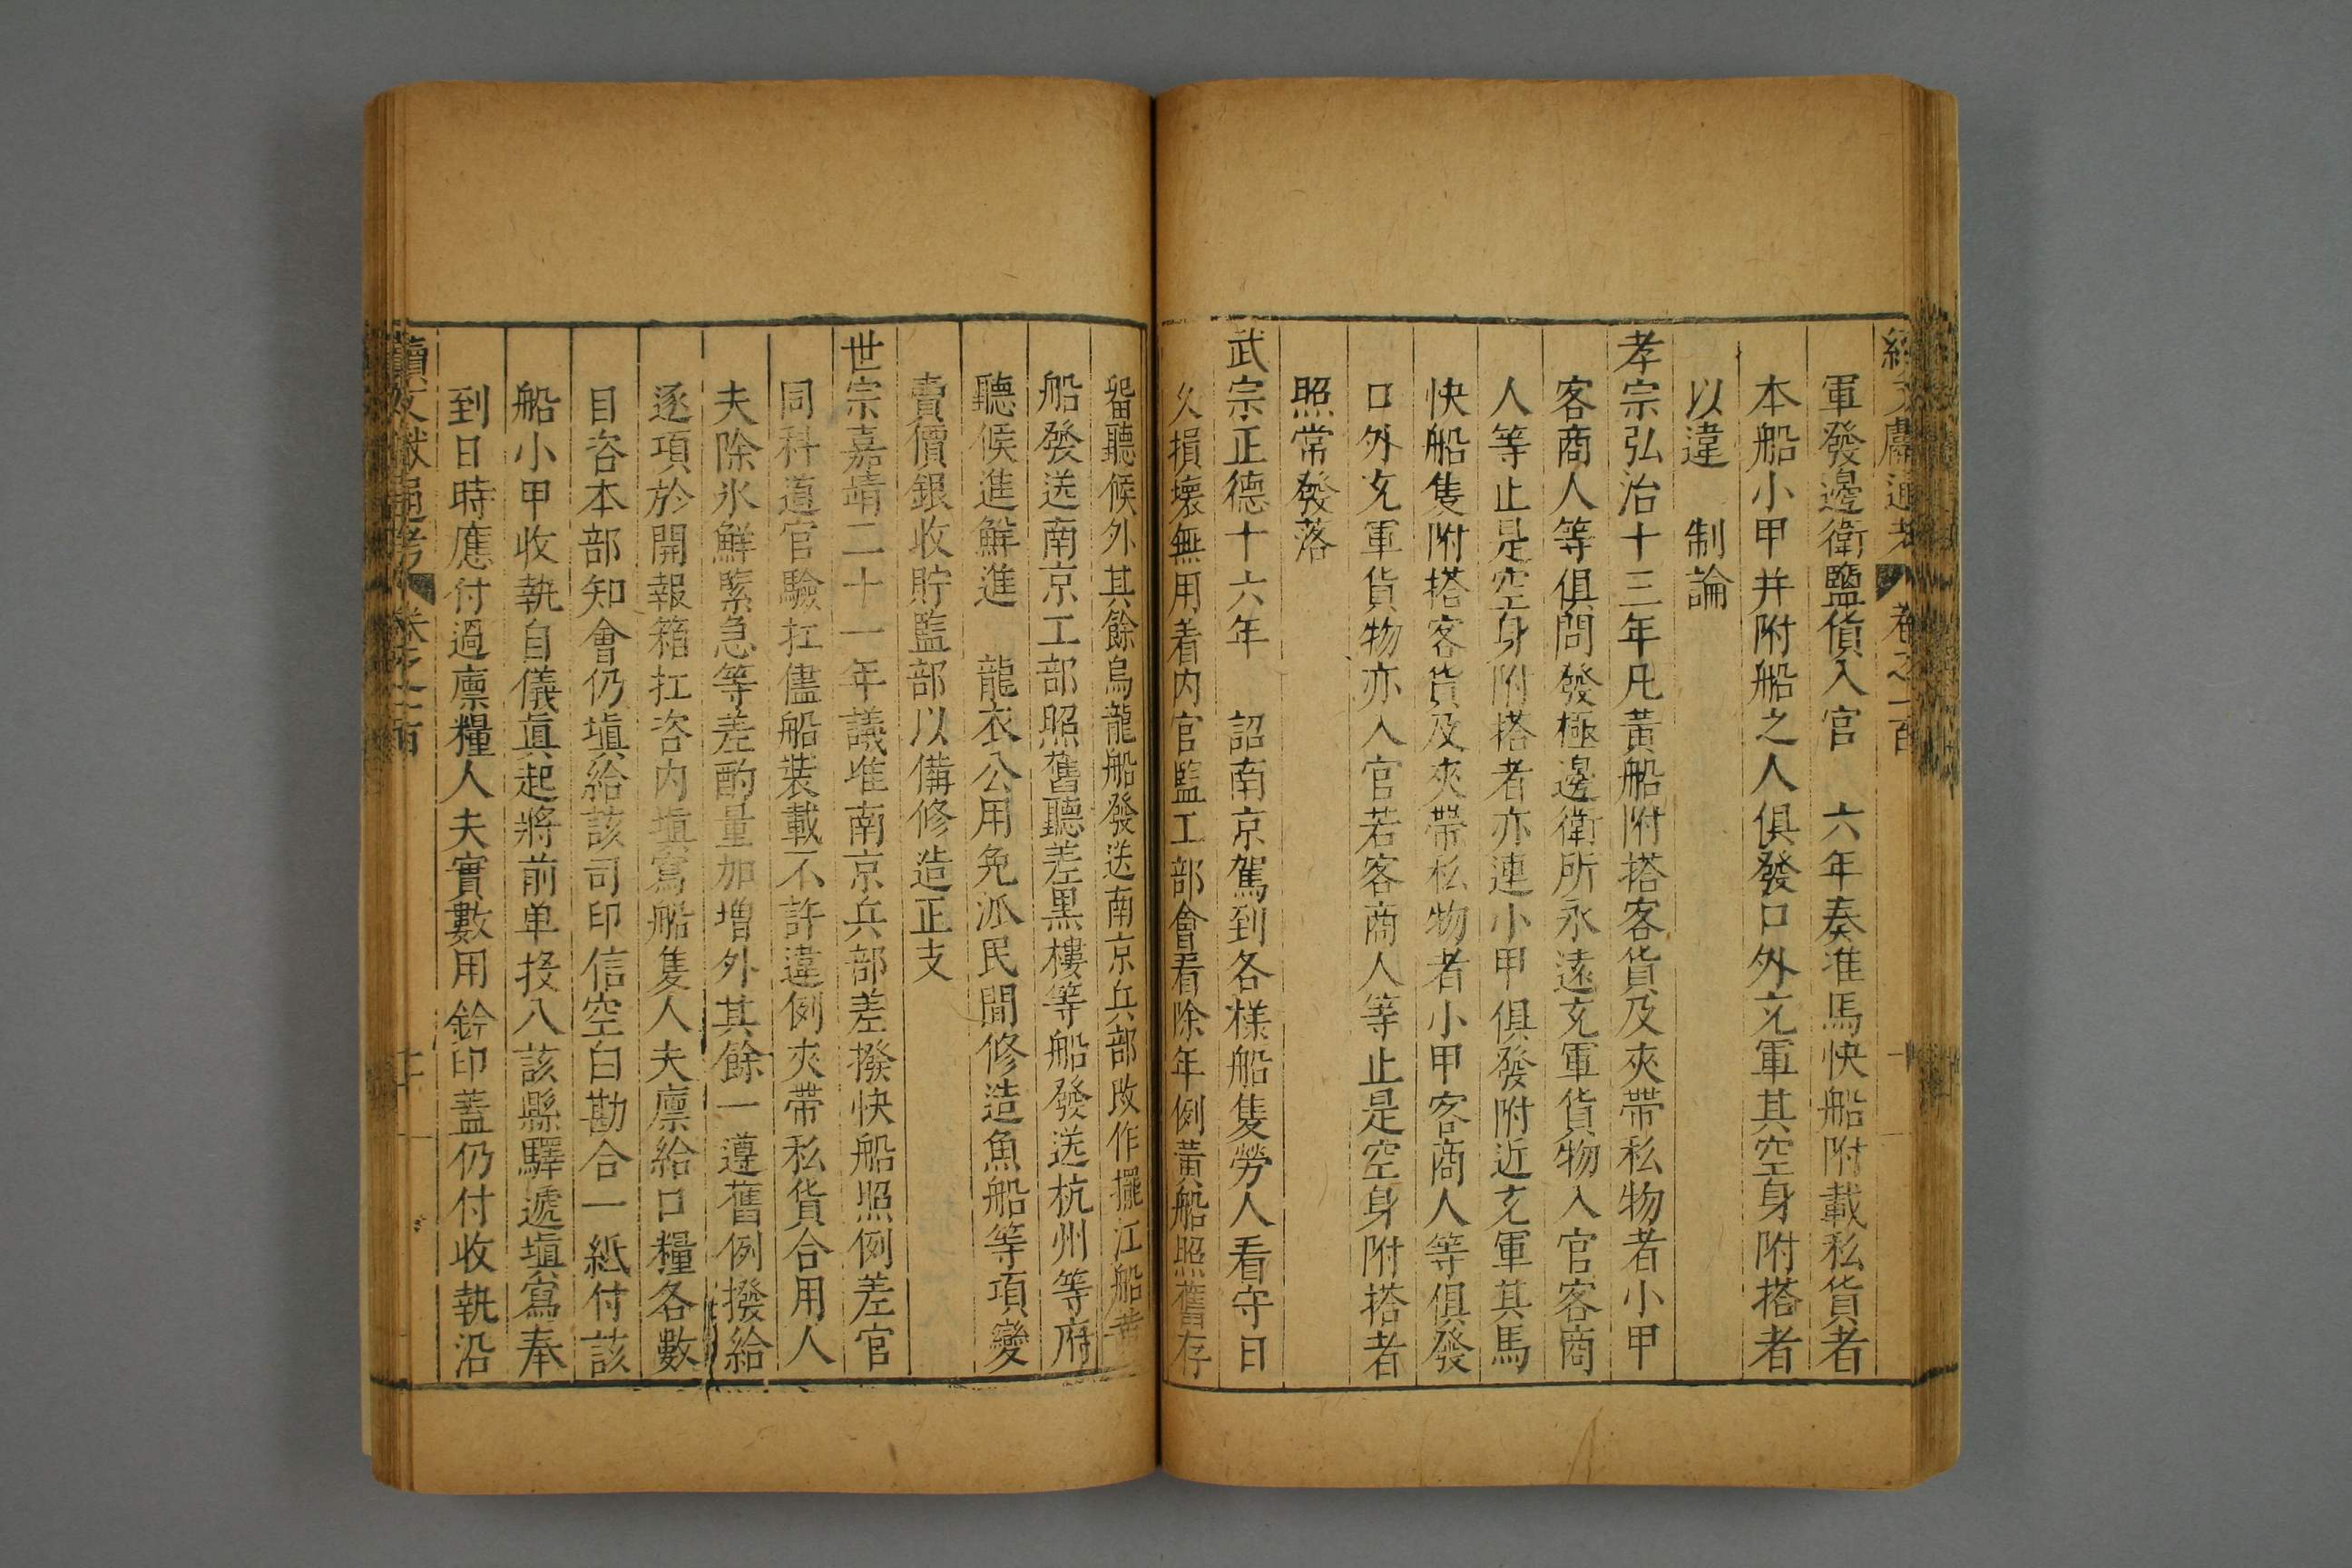 續文獻通考 卷之一百
軍發邊衛鹽貨入官 六年奏准馬快船附載私貨者
本船小甲并附船之人俱發口外充軍其空身附搭者
以違 制論
孝宗弘治十三年凡黃船附搭客貨及夾帶私物者小甲
客商人等俱問發極邊衛所永遠充軍貨物入官客商
人等止是空身附搭者亦連小甲俱發附近充軍其馬
快船隻附搭客貨及夾帶私物者小甲客商人等俱發
口外充軍貨物亦入官若客商人等止是空身附搭者
照常發落
武宗正德十六年 詔南京駕到各樣船隻勞人看守日
久損壞無用着內官監工部會看除年例黃船照舊存
畱聽候外其餘烏龍船發送南京兵部改作擺江船黃
船發送南京工部照舊聽差黑樓等船發送杭州等府
聽候進鮮進 龍衣公用免派民間修造魚船等項變
賣價銀收貯監部以備修造正支
世宗嘉靖二十一年議准南京兵部差撥快船照例差官
同科道官驗扛儘船裝載不許違例夾帶私貨合用人
夫除氷鮮緊急等差酌量加增外其餘一遵舊例撥給
逐項於開報箱扛咨內塡寫船隻人夫廪給口糧各數
目咨本部知會仍塡給該司印信空白勘合一紙付該
船小甲收執自儀眞起將前单投入該縣驛遞塡寫奉
到日時應付過廪糧人夫實數用鈐印蓋仍付收執沿
續文獻通考 卷之一百 十一